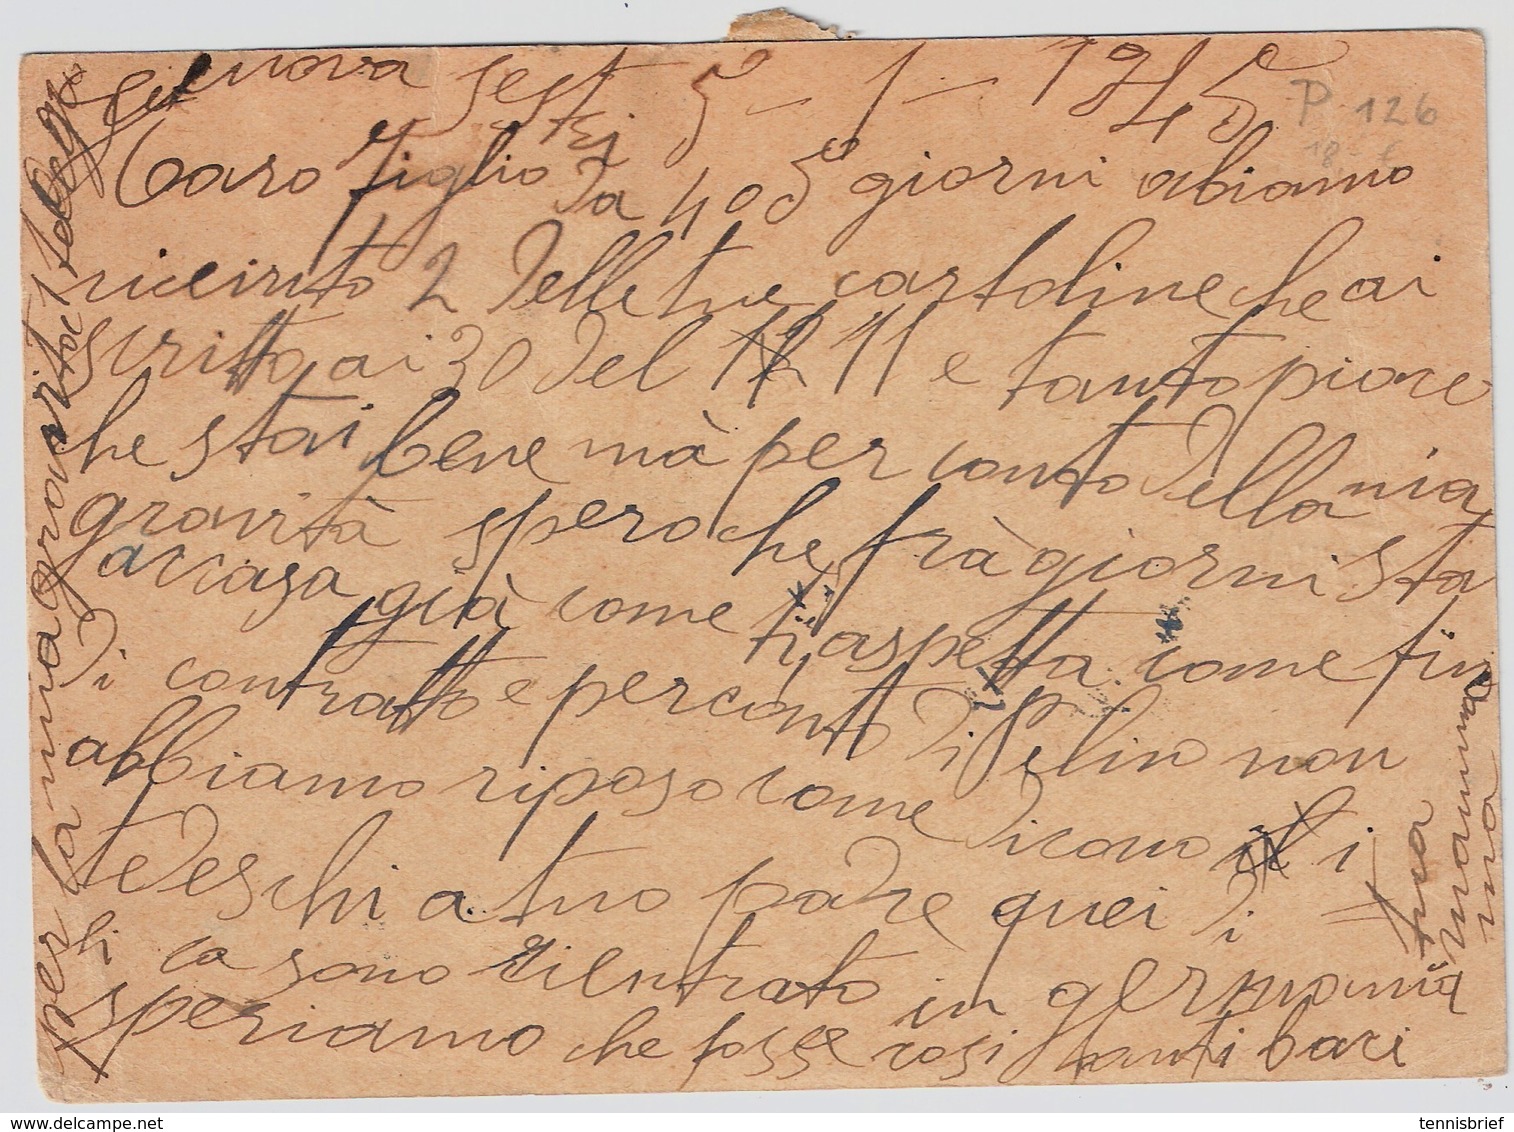 Genova Sestri 5-1-1945
P 126
18-€
Caro figlio da 4 o 5 giorni abiamo
riceiuto 2 delle tue cartoline che ai
scritto ai 30 del 11 e tanto piore
che stai bene mà per conto della mia
gravità spero che frà giorni sta
accasa già come ti aspetta come fin
di contratto e per conto di Pelino non
abbiamo riposo come dicono i
tedeschi a tuo padre quei di
li ca sono rientrato in germania
speriamo che fosse cosi tanti baci
tua mamma
per la mia gravità
tennisbrief